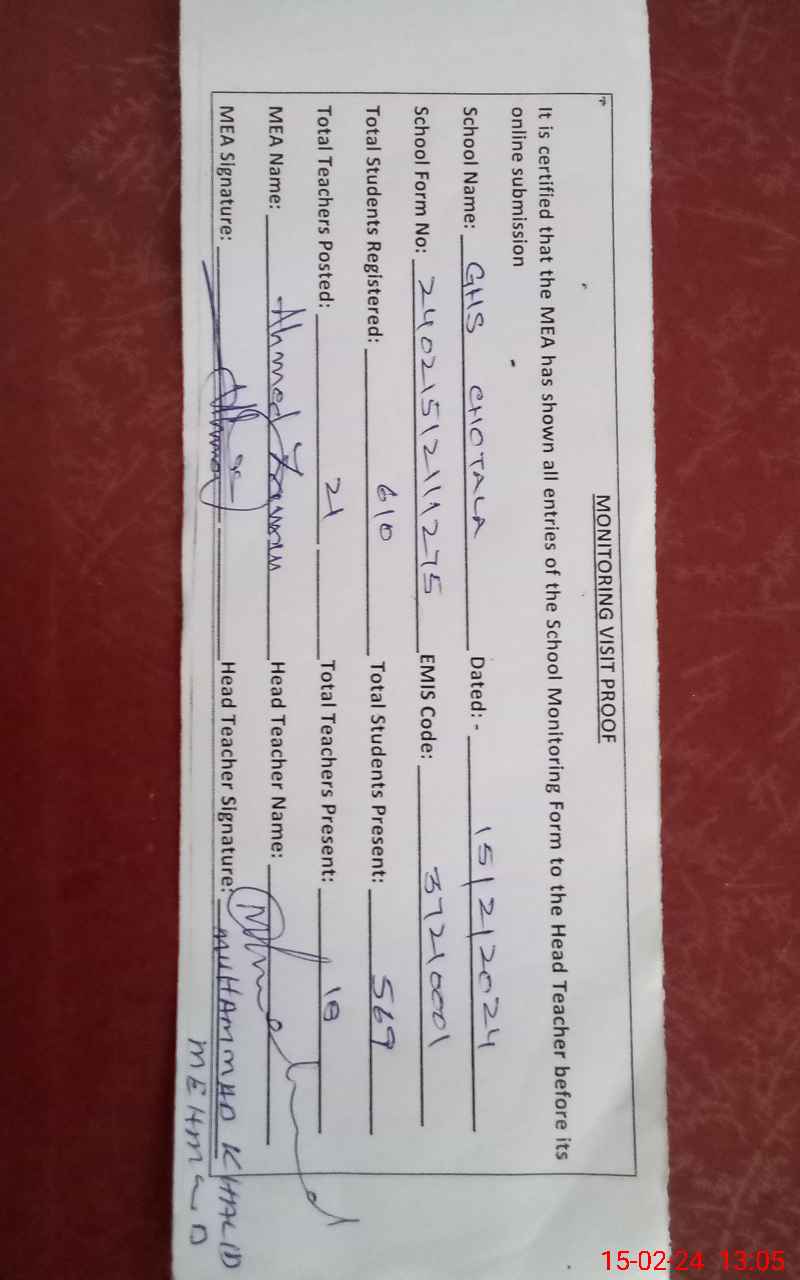 MONITORING VISIT PROOF
It is certified that the MEA has shown all entries of the School Monitoring Form to the Head Teacher before its
online submission
School Name: GHS CHOTALA Dated: - 15/2/2024
School Form No: 240215121111275 EMIS Code: 37210001
Total Students Registered: 610 Total Students Present: 569
Total Teachers Posted: 21 Total Teachers Present: 18
MEA Name: Ahmed Head Teacher Name:
MEA Signature: Head Teacher Signature: MUHAMMAD KHALID
MEHMUD
15-02-24 13:05